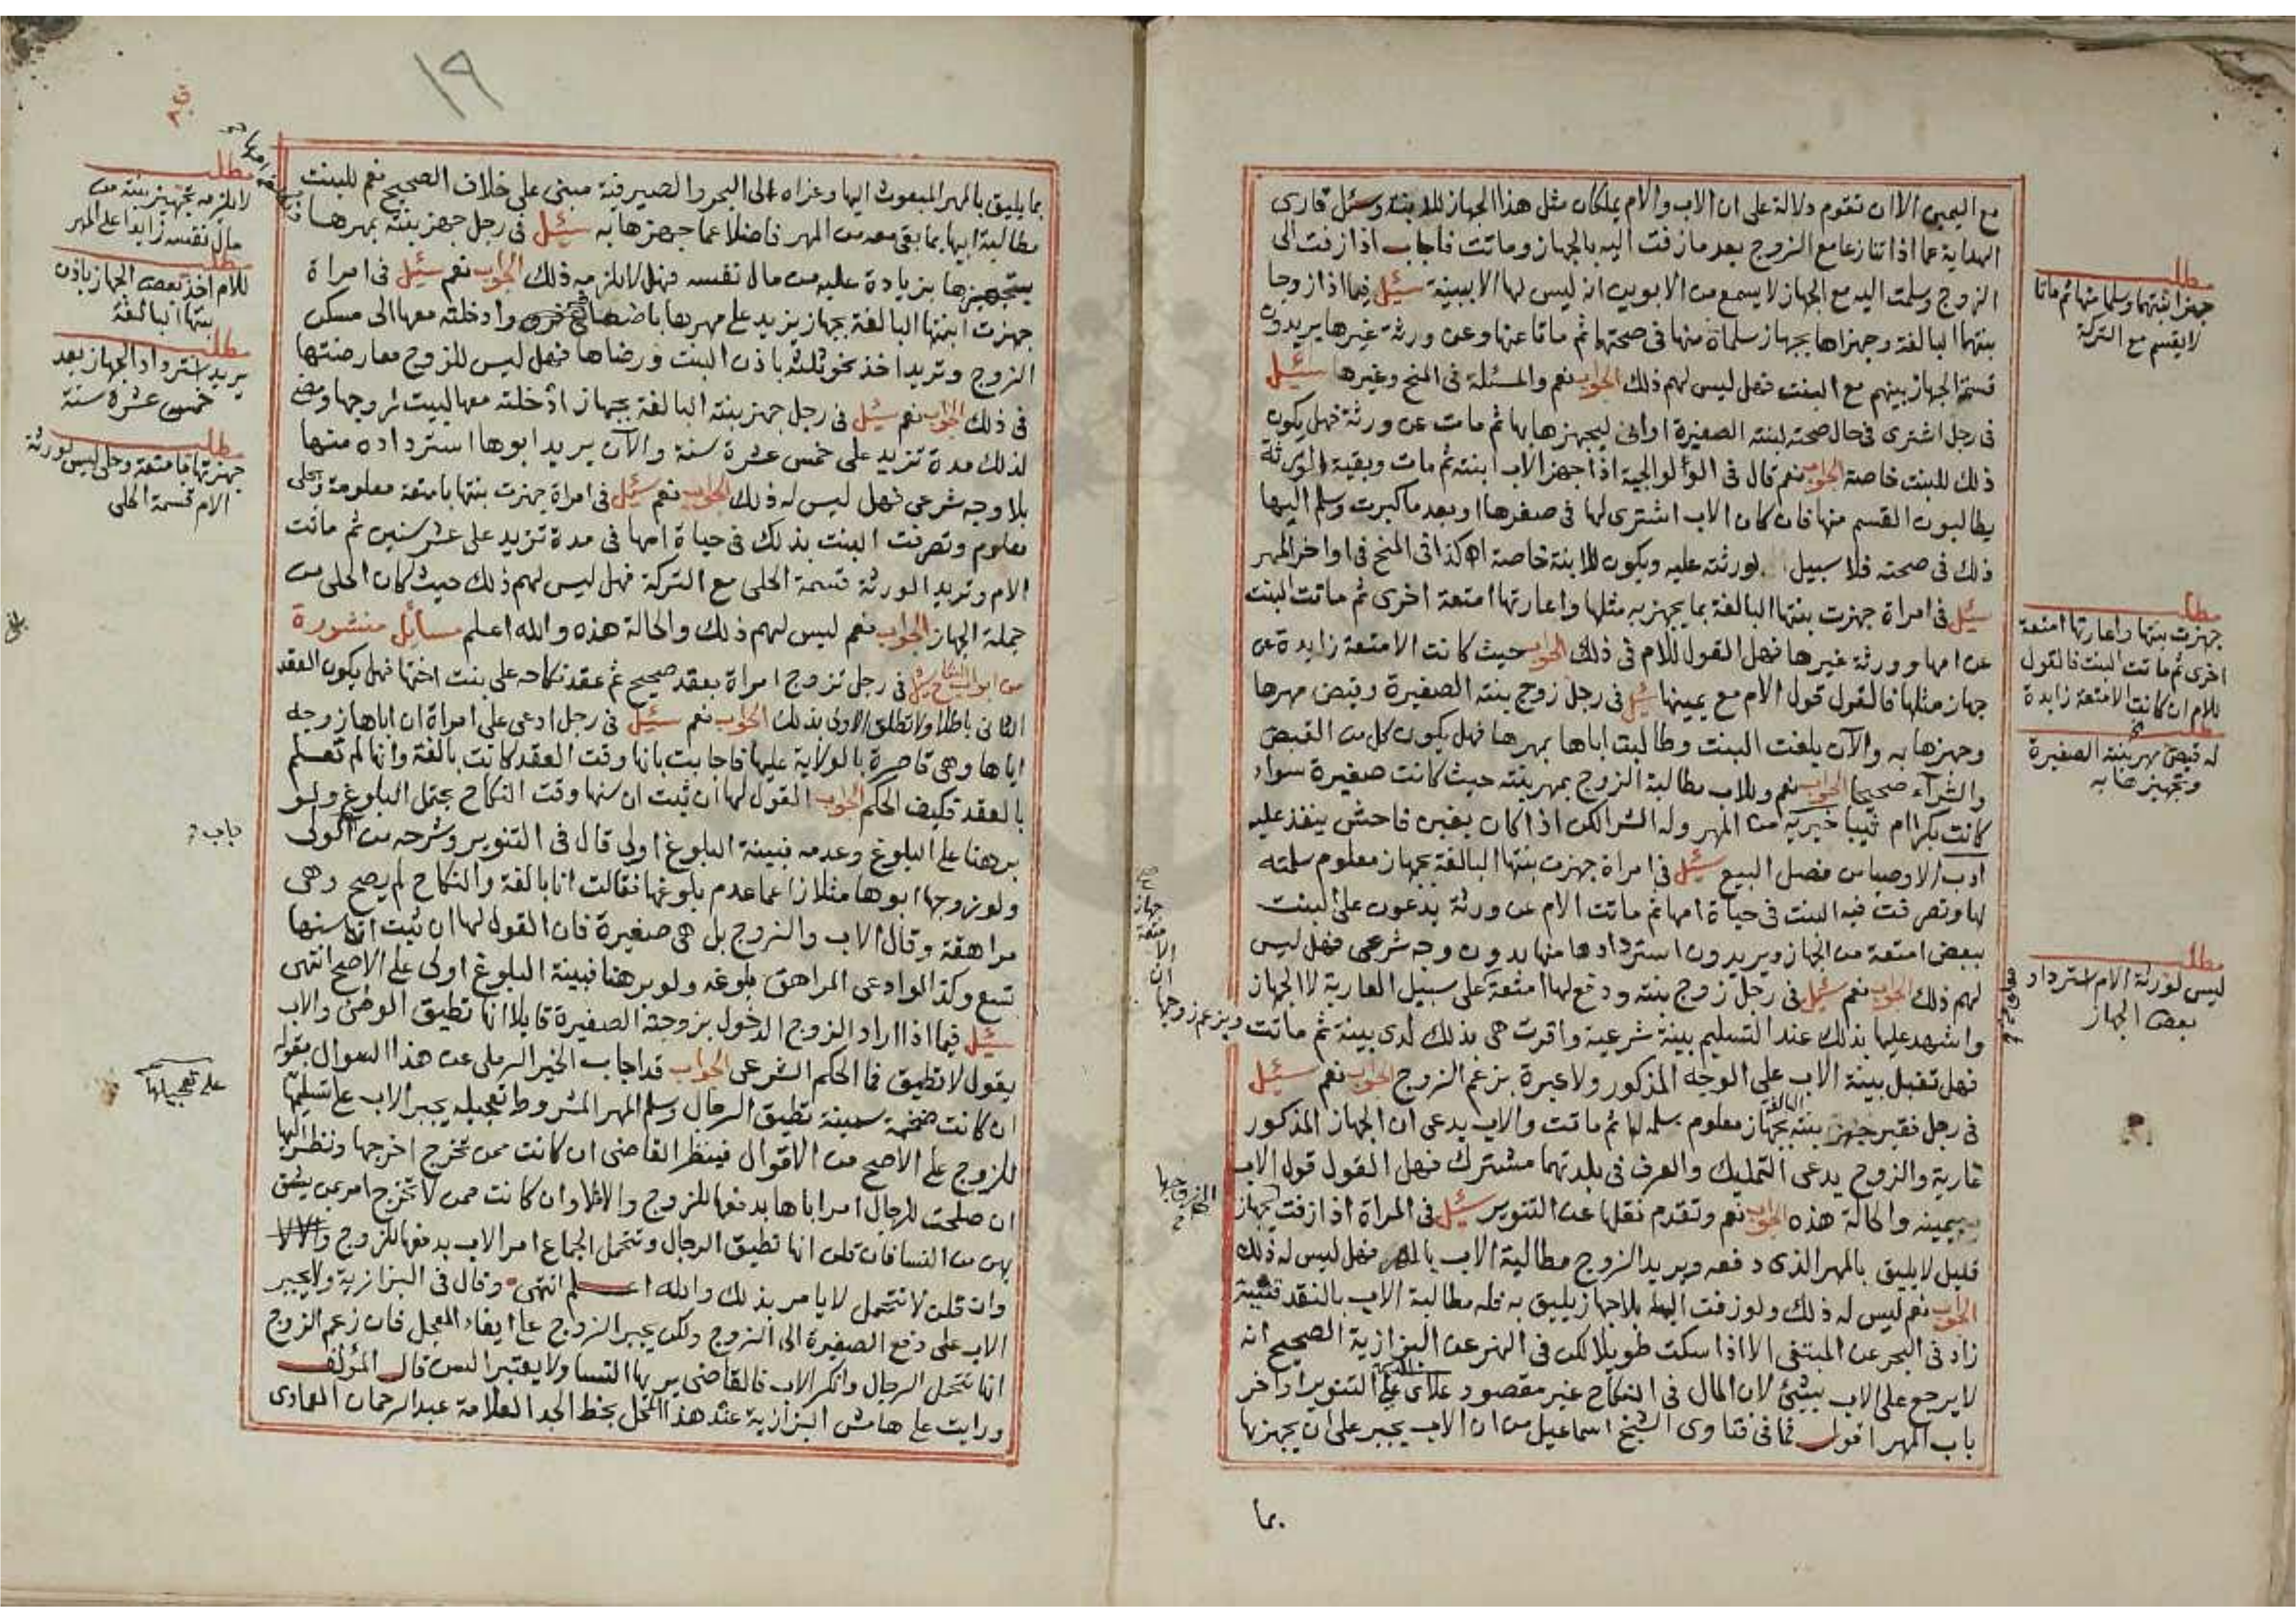 مع اليمين الا ان تقوم دلالة على ان الاب والام يملكان مثل هذا الجهاز للابنة وسئل قارى
الهداية عما اذا تنازعا مع الزوج بعد ما زفت اليه بالجهاز وماتت فاجاب اذا زفت الى
الزوج وسلمت اليه مع الجهاز لا يسمع من الابوين انه ليس لها الا ببينة سئل فيما اذا زوجا
بنتهما البالغة وجهزاها بجهاز سلماه منها فى صحتهما ثم ماتا عنها وعن ورثة غيرها يريدون
قسمة الجهاز بينهم مع البنت فهل ليس لهم ذلك الجواب نعم والمسئلة فى المنح وغيرها سئل
فى رجل اشترى فى حال صحته لبنته الصغيرة اوانى ليجهزها بها ثم مات عن ورثة فهل يكون
ذلك للبنت خاصة الجواب نعم قال فى الولوالجية اذا جهز الاب ابنته ثم مات وبقية الورثة
يطالبون القسم منها فان كان الاب اشترى لها فى صغرها او بعد ما كبرت وسلم اليها
ذلك فى صحته فلا سبيل لورثته عليه ويكون للابنة خاصة اه كذا فى المنح فى اواخر المهر
سئل فى امراة جهزت بنتها البالغة بما يجهز به مثلها واعارتها امتعة اخرى ثم ماتت البنت
عن امها وورثة غيرها فهل القول للام فى ذلك الجواب حيث كانت الامتعة زايدة عن
جهاز مثلها فالقول قول الام مع يمينها سئل فى رجل زوج بنته الصغيرة وقبض مهرها
وجهزها به والآن بلغت البنت وطالبت اباها بمهرها فهل يكون كل من القبض
والشرآء صحيحا الجواب نعم وللاب مطالبة الزوج بمهر بنته حيث كانت صغيرة سواء
كانت بكرا ام ثيبا خيرية من المهر وله الشرا لكن اذا كان بغبن فاحش ينفذ عليه
ادب الاوصيا من فصل البيع سئل فى امراة جهزت بنتها البالغة بجهاز معلوم سلمته
لها وتصرفت فيه البنت فى حياة امها ثم ماتت الام عن ورثة يدعون على البنت
ببعض امتعة من الجهاز ويريدون استردادها منها بدون وجه شرعى فهل ليس
لهم ذلك الجواب نعم سئل فى رجل زوج بنته ودفع لها امتعة على سبيل العارية لا الجهاز
واشهد عليها بذلك عند التسليم بينة شرعية واقرت هى بذلك لدى بينة ثم ماتت ويزعم زوجها ان الامتعة جهاز
فهل تقبل بينة الاب على الوجه المذكور ولا عبرة بزعم الزوج الجواب نعم سئل
فى رجل فقير جهز بنته البالغة بجهاز معلوم سلمه لها ثم ماتت والاب يدعى ان الجهاز المذكور
عارية والزوج يدعى التمليك والعرف فى بلدتهما مشترك فهل القول قول الاب
بيمينه والحالة هذه الجواب نعم وتقدم نقلها عن التنوير سئل فى المراة اذا زفت بجهاز
قليل لا يليق بالمهر الذى دفعه ويريد الزوج مطالبة الاب بالمهر فهل ليس له ذلك
الجواب نعم ليس له ذلك ولو زفت اليه بلا جهاز يليق به فله مطالبة الاب بالنقد قنية
زاد فى البحر عن المبتغى الا اذا سكت طويلا لكن فى النهر عن البزازية الصحيح انه
لا يرجع على الاب بشئ لان المال فى النكاح غير مقصود علائى على التنوير اواخر
باب المهر اقول فما فى فتاوى الشيخ اسماعيل من ان الاب يجبر على ان يجهزها
بما
مطلب
جهزا بنتهما وسلما منها ثم ماتا
لا يقسم مع التركة
مطلب
جهزت بنتها واعارتها امتعة
اخرى ثم ماتت البنت فالقول
للام ان كانت الامتعة زايدة
مطلب
له قبض مهر بنته الصغيرة
وتجهيزها به
مطلب
ليس لورثة الام استرداد
بعض الجهاز
١٩
بما يليق بالمهر المبعوث اليها وعزاه الى البحر والصيرفية مبنى على خلاف الصحيح نعم للبنت
مطالبة ابيها بما بقى معه من المهر فاضلا عما جهزها به سئل فى رجل جهز بنته بمهرها
بتجهيزها بزيادة عليه من مال نفسه فهل لا يلزمه ذلك الجواب نعم سئل فى امراة
جهزت ابنتها البالغة بجهاز يزيد على مهرها وادخلته معها الى مسكن
الزوج وتريد اخذ نحو ثلثه باذن البنت ورضاها فهل ليس للزوج معارضتها
فى ذلك الجواب نعم سئل فى رجل جهز بنته البالغة بجهاز ادخلته معها لبيت زوجها ومضى
لذلك مدة تزيد على خمس عشرة سنة والآن يريد ابوها استرداده منها
بلا وجه شرعى فهل ليس له ذلك الجواب نعم سئل فى امراة جهزت بنتها بامتعة معلومة وبحلى
معلوم وتصرفت البنت بذلك فى حياة امها فى مدة تزيد على عشر سنين ثم ماتت
الام وتريد الورثة قسمة الحلى مع التركة فهل ليس لهم ذلك حيث كان الحلى من
جملة الجهاز الجواب نعم ليس لهم ذلك والحالة هذه والله اعلم مسائل منشورة
من ابواب النكاح سئل فى رجل تزوج امراة بعقد صحيح ثم عقد نكاحه على بنت اختها فهل يكون العقد
الثانى باطلا ولا تطلق الاولى بذلك الجواب نعم سئل فى رجل ادعى على امراة ان اباها زوجه
اياها وهى قاصرة بالولاية عليها فاجابت بانها وقت العقد كانت بالغة وانها لم تعلم
بالعقد فكيف الحكم الجواب القول لها ان ثبت ان سنها وقت النكاح يحتمل البلوغ ولو
برهنا على البلوغ وعدمه فبينة البلوغ اولى قال فى التنوير وشرحه من الولى
ولو زوجها ابوها مثلا زاعما عدم بلوغها فقالت انا بالغة والنكاح لم يصح وهى
مراهقة وقال الاب والزوج بل هى صغيرة فان القول لها ان ثبت ان سنها
تسع وكذا لو ادعى المراهق بلوغه ولو برهنا فبينة البلوغ اولى على الاصح انتهى
سئل فيما اذا اراد الزوج الدخول بزوجته الصغيرة قايلا انها تطيق الوطئ والاب
يقول لا تطيق فما الحكم الشرعى الجواب قد اجاب الخير الرملى عن هذا السوال بقوله
ان كانت ضخمة سمينة تطيق الرجال وسلم المهر المشروط تعجيله يجبر الاب على تسليمها
للزوج على الاصح من الاقوال فينظر القاضى ان كانت ممن تخرج اخرجها ونظر اليها
ان صلحت للرجال امر اباها بدفعها للزوج والا فلا وان كانت ممن لا تخرج امر من يثق
بهن من النسا فان قلن انها تطيق الرجال وتتحمل الجماع امر الاب بدفعها للزوج
وان قلن لا تتحمل لا يامر بذلك والله اعلم انتهى وقال فى البزازية ولا يجبر
الاب على دفع الصغيرة الى الزوج ولكن يجبر الزوج على ايفاء المعجل فان زعم الزوج
انها تتحمل الرجال وانكر الاب فالقاضى يريها النسا ولا يعتبر السن قال المؤلف
ورايت على هامش البزازية عند هذا المحل بخط الجد العلامة عبد الرحمان العمادى
مطلب
لا يلزمه تجهيز بنته من
مال نفسه زايدا على المهر
مطلب
للام اخذ بعض الجهاز باذن
بنتها البالغة
مطلب
يريد استرداد الجهاز بعد
خمس عشرة سنة
مطلب
جهزتها بامتعة وحلى ليس لورثة
الام قسمة الحلى
باب
على تعجيلها